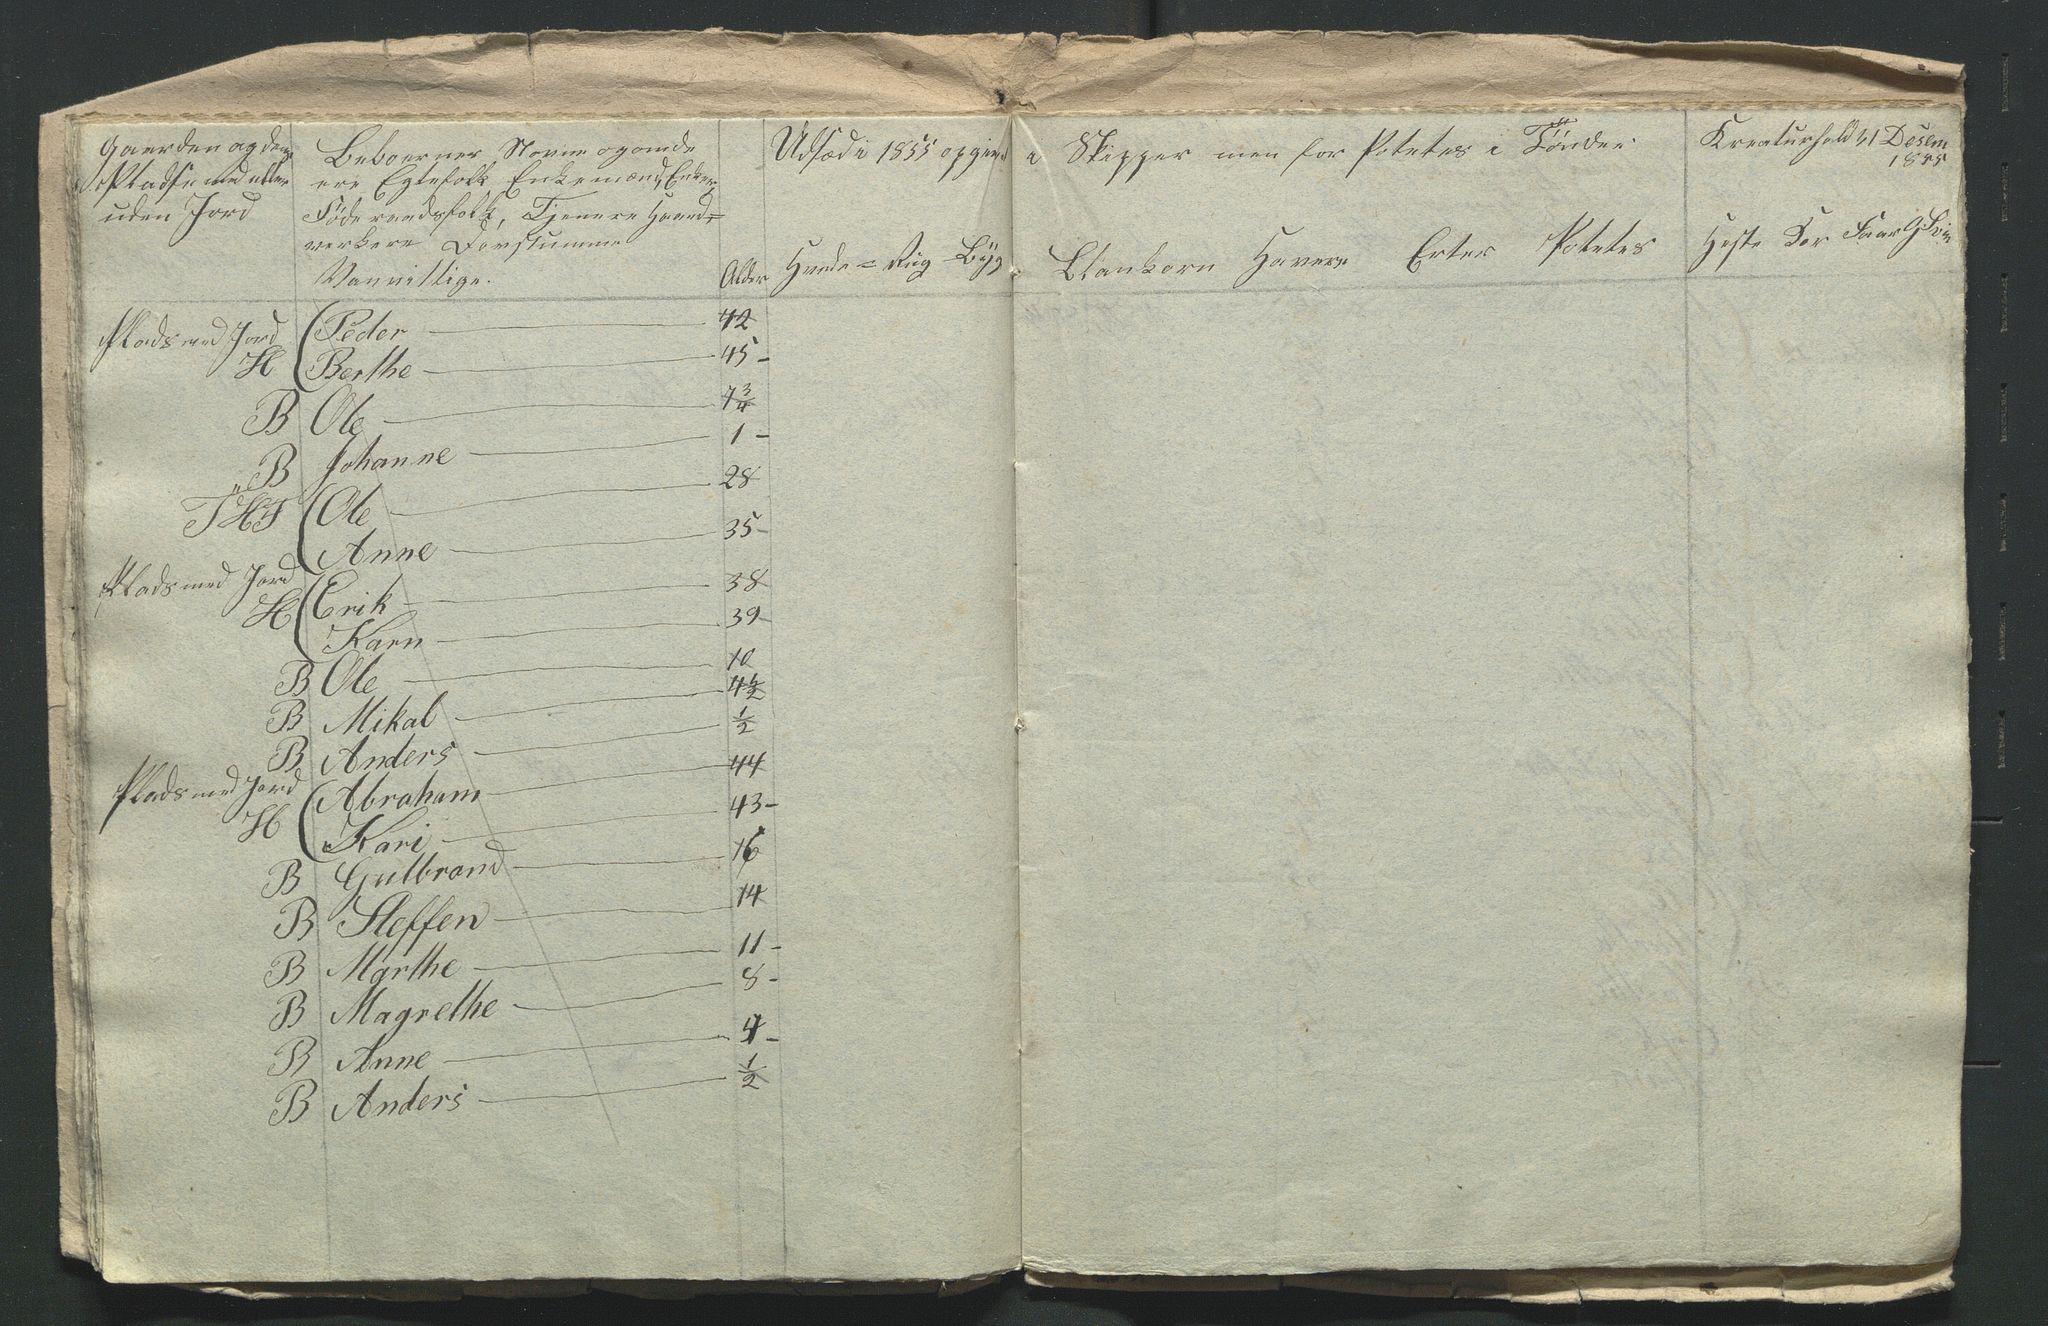 Gaarden og dens
Pladse med eller
uden Jord
Beboernes Navne og om de
ere Egtefolk Enkemænd, Enker,
Føderaadsfolk, Tjenere Haand=
verkere Døvstumme
Vanvittige.
Alder
Udsæd i 1855 opgivet i Skipper men for Potetes i Tønder
Hvede = Rug Byg Blankorn Havere Erter Potetes
Kreaturhold 31 Desem
1855
Heste Kør Faar G Svin
Plads med Jord Peder 42
H Berthe 45 -
B Ole 7 3/4
B Johanne 1 -
THF Ole 28
Anne 35 -
Plads med Jord Erik 38
H Karn 39 -
B Ole 10
B Mikal
B Anders 1/2
Plads med Jord Abraham 44
H Kari 43 -
B Gulbrand 16
B Steffen 14
B Marthe 11 -
B Magrethe 8 -
B Anne 4 -
B Anders 1/2